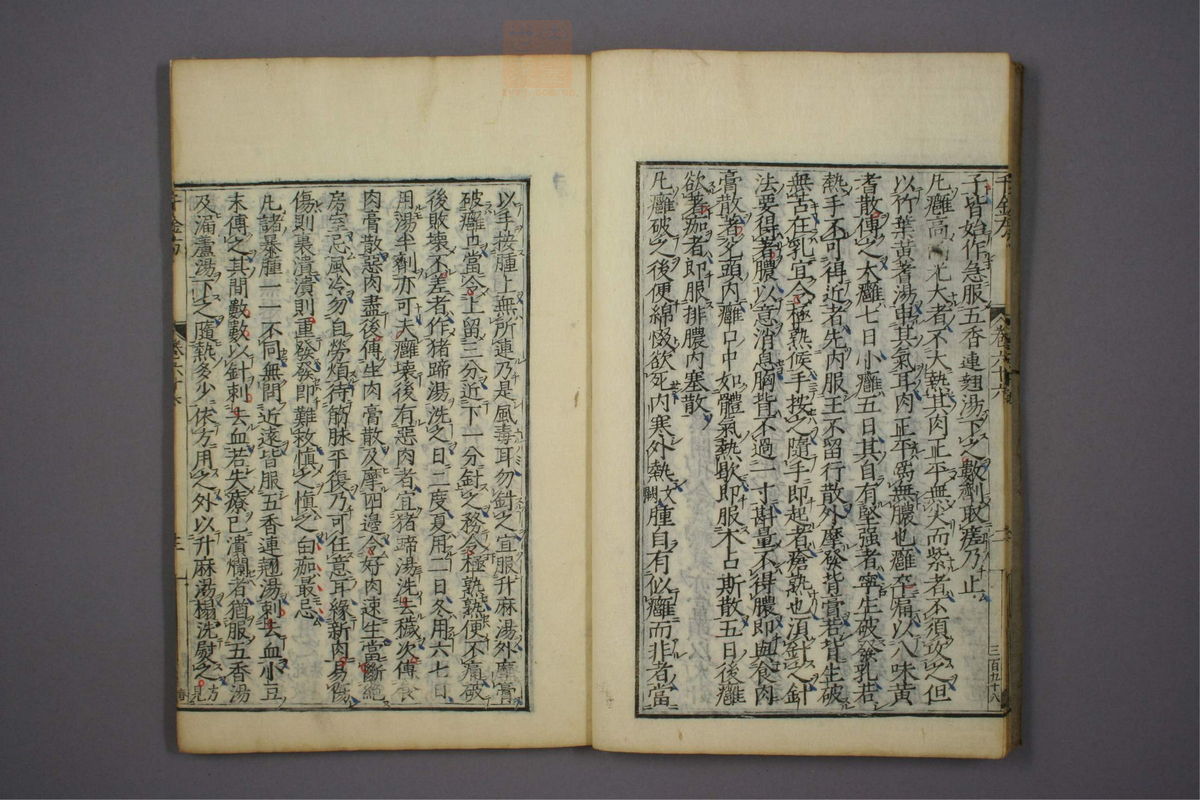 子皆始作急服五香連翹湯下之數劑取瘥乃止
凡癰高而光大者不大熱其肉正平無尖而紫者不須攻之但
以竹葉黃耆湯申其氣耳肉正平爲無膿也癰卒痛以八味黃
耆散傅之大癰七日小癰五日其自有堅强者寧生破發乳若
熱手不可得近者先內服王不留行散外摩發背膏若背生破
無苦在乳宜令極熟候手按之隨手即起者瘡熟也須針之針
法要得著膿以意消息胸背不過一寸斟量不得膿即與食肉
膏散著尖頭內癰口中如體氣熱歇即服木占斯散五日後癰
欲著痂者即服排膿內塞散
凡癰破之後便綿惙欲死內寒外熱文闕腫自有似癰而非者當
以手按腫上無所連乃是風毒耳勿針之宜服升麻湯外摩膏
破癰口當令上留三分近下一分針之務令極熱熱便不痛破
後敗壞不差者作猪蹄湯洗之日二度夏用二日冬用六七日
用湯半劑亦可夫癰壞後有惡肉者宜猪蹄湯洗去穢次傅食
肉膏散惡肉盡後傅生肉膏散及摩四邊令好肉速生當斷絕
房室忌風冷勿自勞煩待筋脉平復乃可任意耳緣新肉易傷
傷則裏潰潰則重發發即難救愼之愼之白痂最忌
凡諸暴腫一一不同無問近遠皆服五香連翹湯刺去血小豆
末傅之其間數數以針刺去血若失療已潰爛者猶服五香湯
及漏蘆湯下之隨熱多少依方用之外以升麻湯榻洗熨之方見
千金方
卷六十六
三百九十八